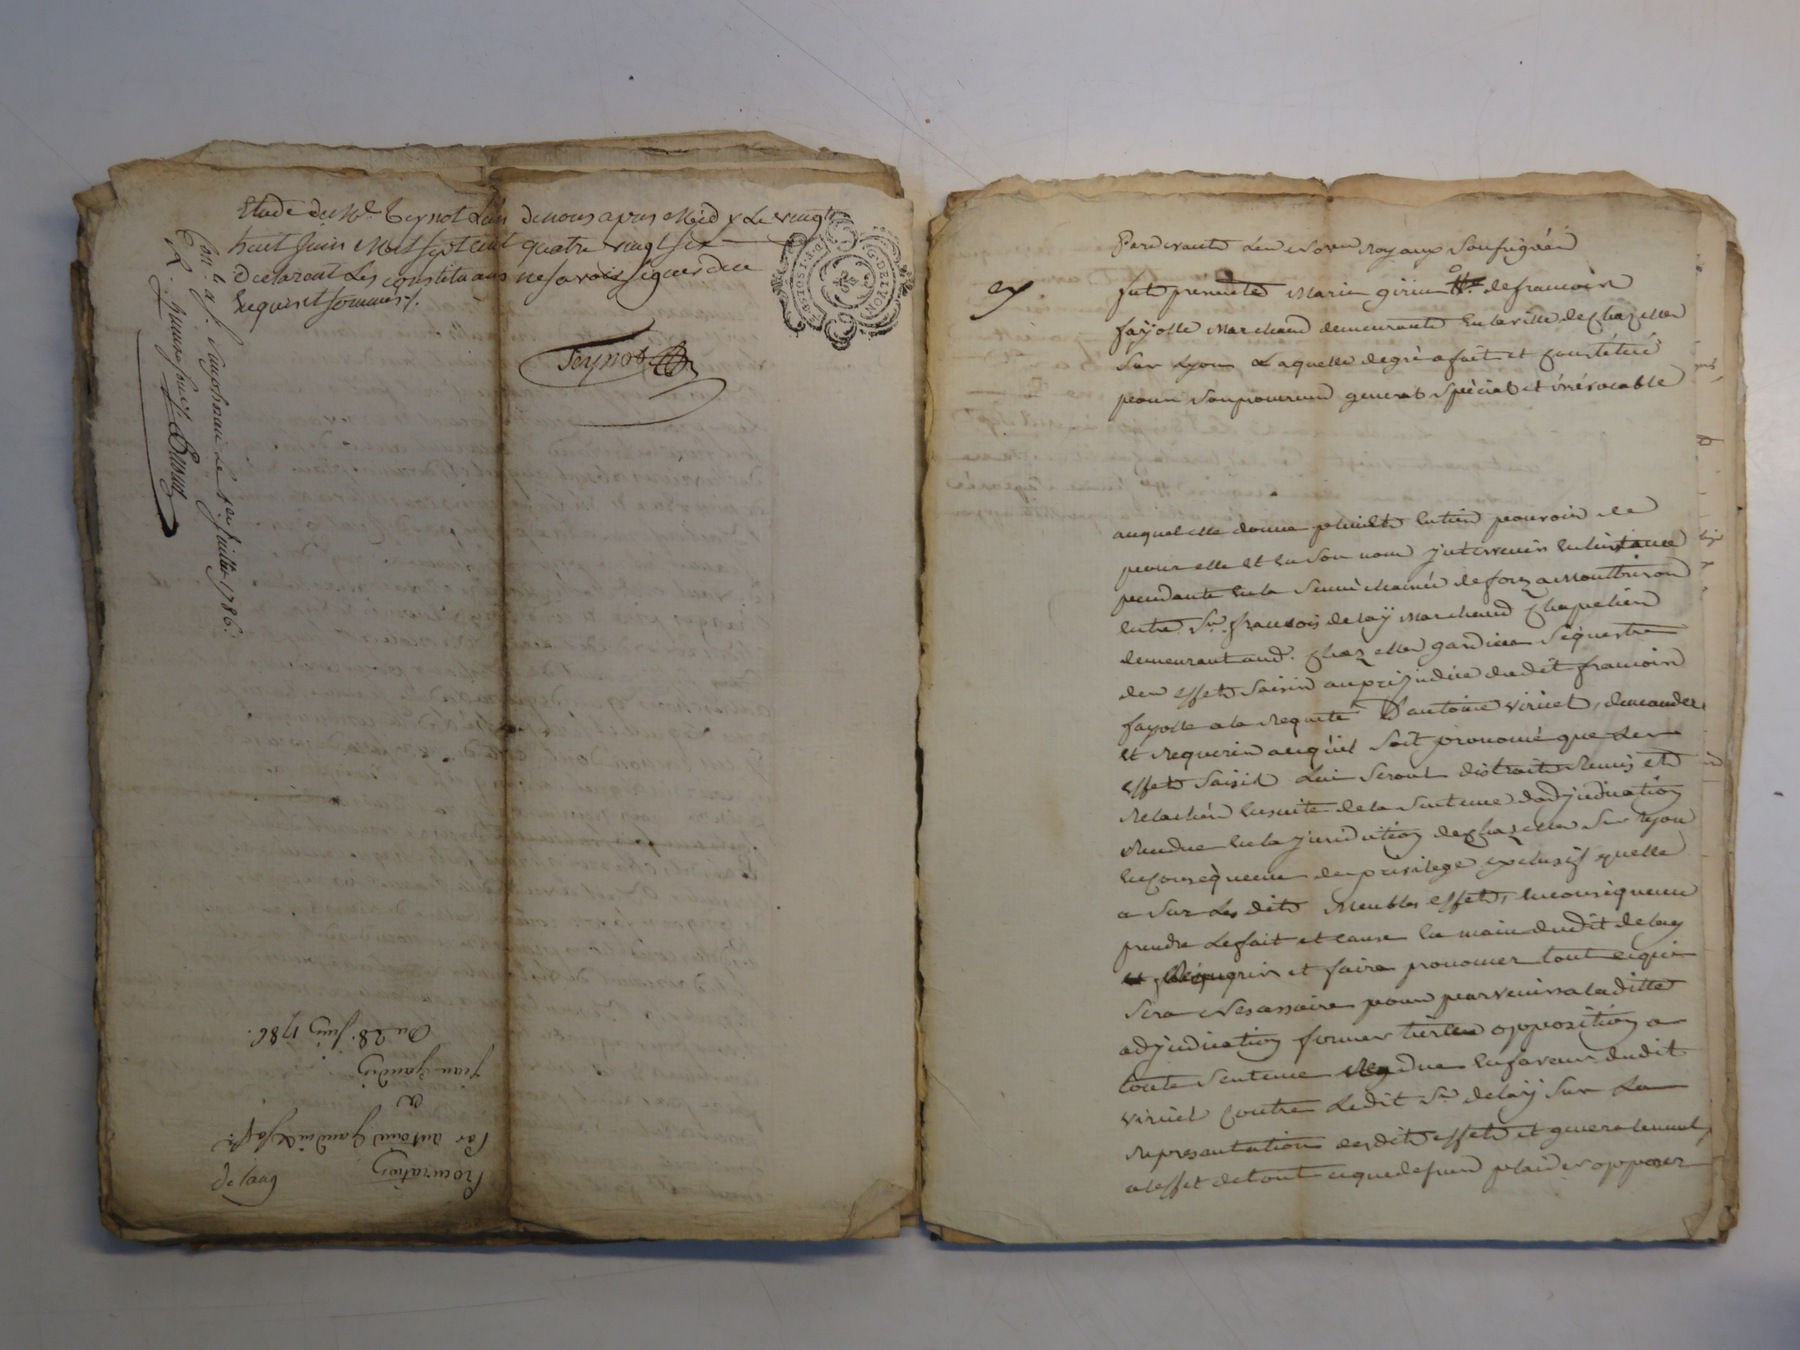 Etude du Me Teynot L'un de nous apres Midy Le vingt
huit Juin Mil sept cent quatre vingt six
Declarant Les constituans ne savoir signer de ce
Requis et sommés.
Teynot
Conlé à St Simphorien Le 1er Juillet 1786.
R. quinze sous
G. DE LYON
Du 28. Juin 1786.
Jean Gaudin
a
Par antoine Gaudin
Procuration
Pardevant Les Nores royaux Soussignés
fut présente Marie girin fe. de francois
fayolle Marchand demeurante En la ville de Chazelles
Sur Lyon Laquelle de gré a fait et Constitué
pour Son procureur general Spécial et irrévocable
auquel elle donne plein et Entier pouvoir de
pour elle et En Son nom jntervenir En linstance
pendante En la Sénéchaussée de forez a Montbrison
Entre Sr. francois delay Marchand Chapelier
demeurant aud. Chazelles gardien Séquestre
des effets Saisis au préjudice dudit francois
fayolle a la Requete D'antoine viricel, demander
et Requerir a cequ'il Soit prononcé que Les
effets Saisis Lui Seront distraits Remis et
Relachés Ensuite de la Sentence dadjudication
Rendue En la Juridiction de Chazelles Sur Lyon
En Conséquence du privilege exclusif quelle
a Sur Les dits Meubles effets, En conséquence
prendre Le fait et cause En main dudit delay
et Requerir et faire prononcer tout ce qui
Sera Nésessaire pour parvenir a laditte
adjudication former tierce opposition a
toute Sentence Rendue En faveur dudit
viricel Contre Ledit Sr. delay Sur La
Représentation desdits effets et generalement
a leffet de tout ce que dessus plaider opposer